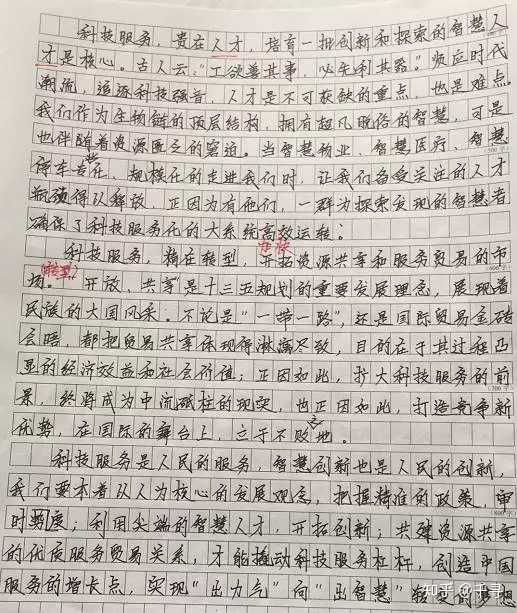 科技服务，贵在人才，培育一批创新和探索的智慧人
才是核心。古人云："工欲善其事，必先利其器。"顺应时代
潮流，追逐科技强音，人才是不可获缺的重点，也是难点。
我们作为生物链的顶层结构，拥有超凡脱俗的智慧，可是
也伴随着资源匮乏的窘迫。当智慧物业、智慧医疗、智慧
停车专业化、规模化的走进我们时，让我们备受关注的人才
瓶颈得以释放，正因为有他们，一群为探索发现的智慧者
确保了科技服务化的大系统高效运转；
加快
科技服务，精在转型，开拓资源共享和服务贸易的市
(转型)
场。"开放、共享"是十三五规划的重要发展理念，展现着
民族的大国风采。不论是"一带一路"，还是国际贸易金砖
会晤，都把贸易共享体现得淋漓尽致，目的在于其过程凸
显的经济效益和社会价值；正因如此，扩大科技服务的前
景，终将成为中流砥柱的现实，也正因如此，打造竞争新
优势，在国际的舞台上，立于不败之地。
科技服务是人民的服务，智慧创新也是人民的创新，
我们要本着以人为核心的发展观念，把握精准的政策，审
时度；利用尖端的智慧人才，开拓创新；共建资源共享
的优质服务贸易关系，才能撬动科技服务杠杆，创造中国
服务的增长点，实现"出力气"向"出智慧"转变的梦想
知乎 @千寻